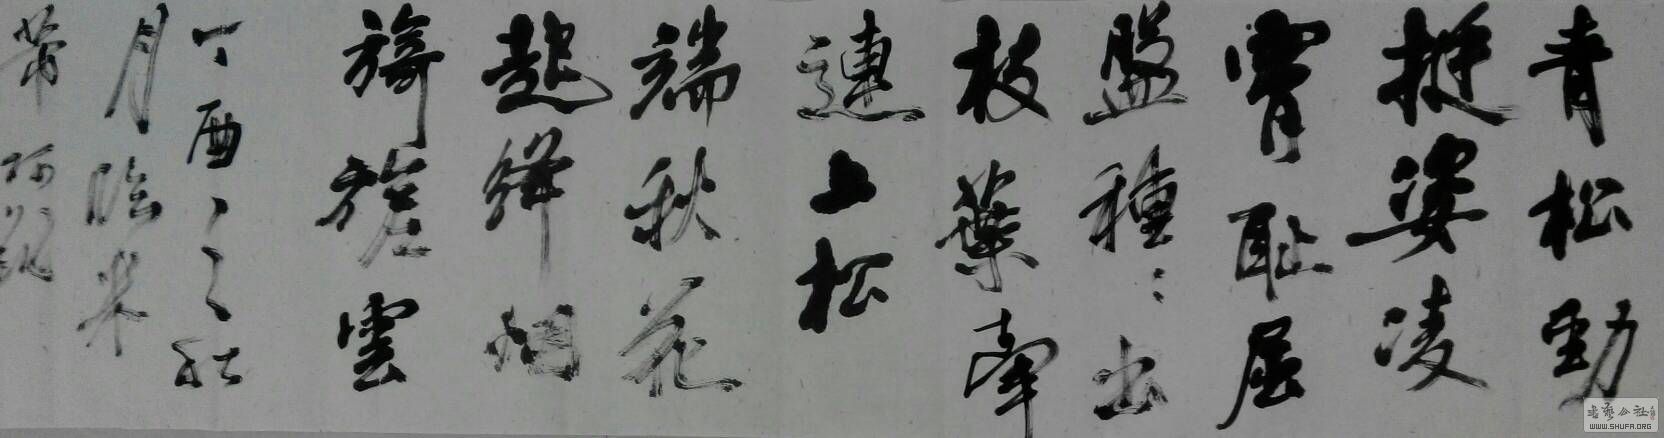 青松勁
挺姿凌
霄耻屈
盤種〻出
枝葉牽
連上松
端秋花
起絳烟
旖旎雲
丁酉之秋
月臨米
芾
書藝公社
WWW.SHUFA.ORG